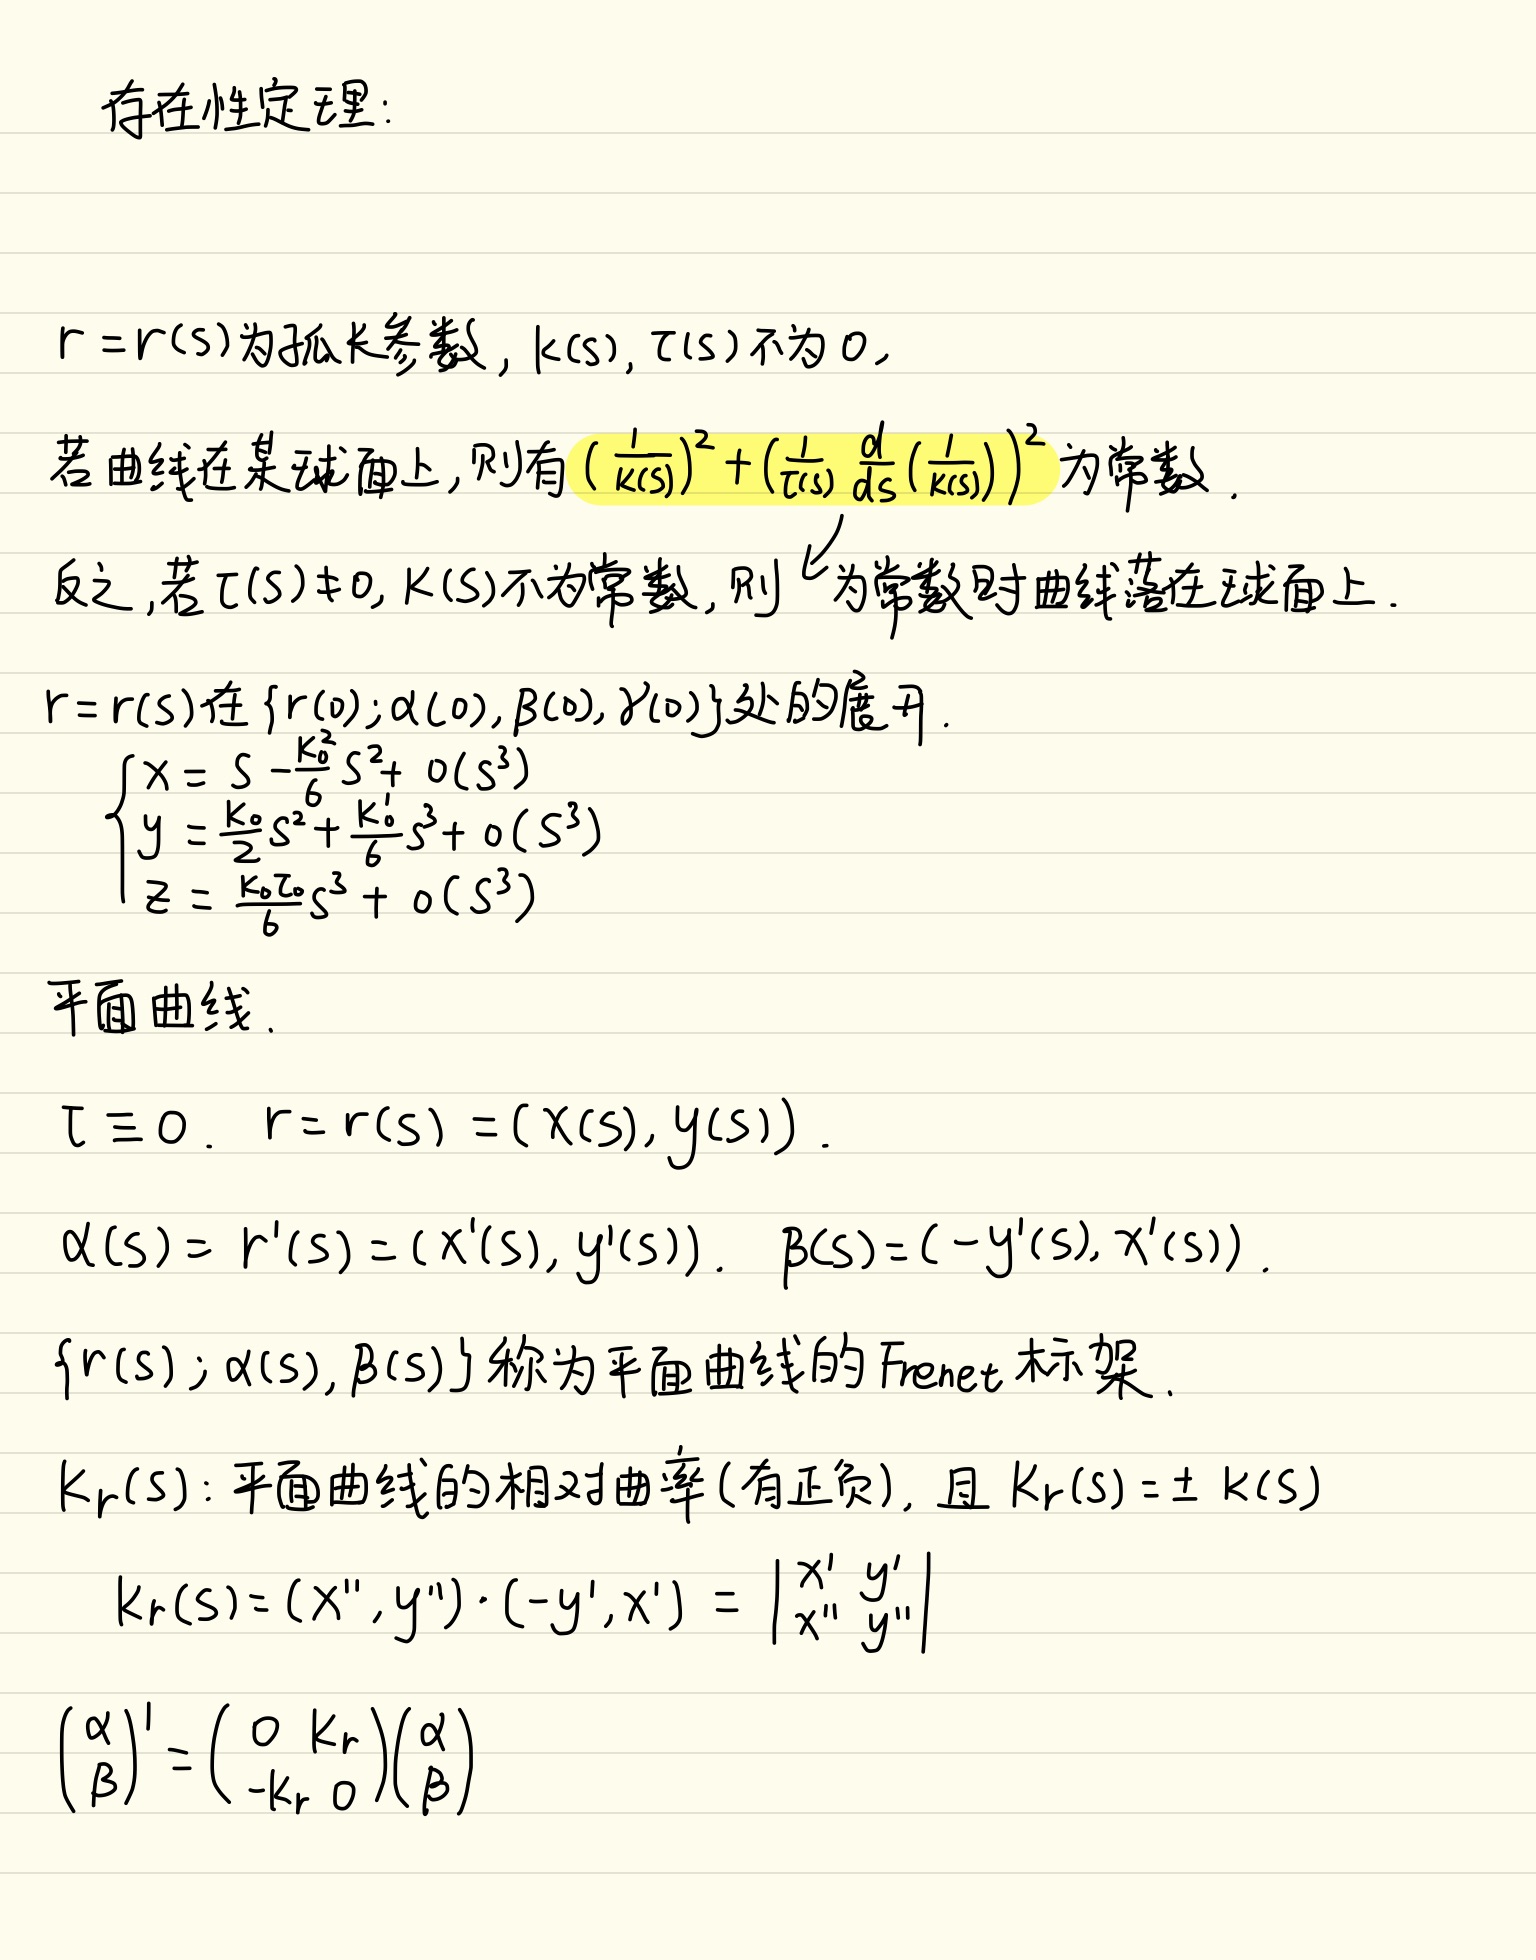 存在性定理:
r = r(s)为弧长参数, k(s), τ(s)不为0,
若曲线在某球面上,则有 (1/k(s))² + (1/τ(s) d/ds (1/k(s)))² 为常数.
反之,若τ(s)≠0, k(s)不为常数,则 ↙ 为常数时曲线落在球面上.
r = r(s)在{r(0); α(0), β(0), γ(0)}处的展开.
x = s - k₀²/6 s² + o(s³)
y = k₀/2 s² + k₀'/6 s³ + o(s³)
z = k₀τ₀/6 s³ + o(s³)
平面曲线.
τ ≡ 0. r = r(s) = (x(s), y(s)).
α(s) = r'(s) = (x'(s), y'(s)). β(s) = (-y'(s), x'(s)).
{r(s); α(s), β(s)}称为平面曲线的Frenet标架.
kᵣ(s): 平面曲线的相对曲率(有正负), 且 kᵣ(s) = ± k(s)
kᵣ(s) = (x'', y'')·(-y', x') = | x' y' ; x'' y'' |
(α ; β)' = (0 kᵣ ; -kᵣ 0)(α ; β)